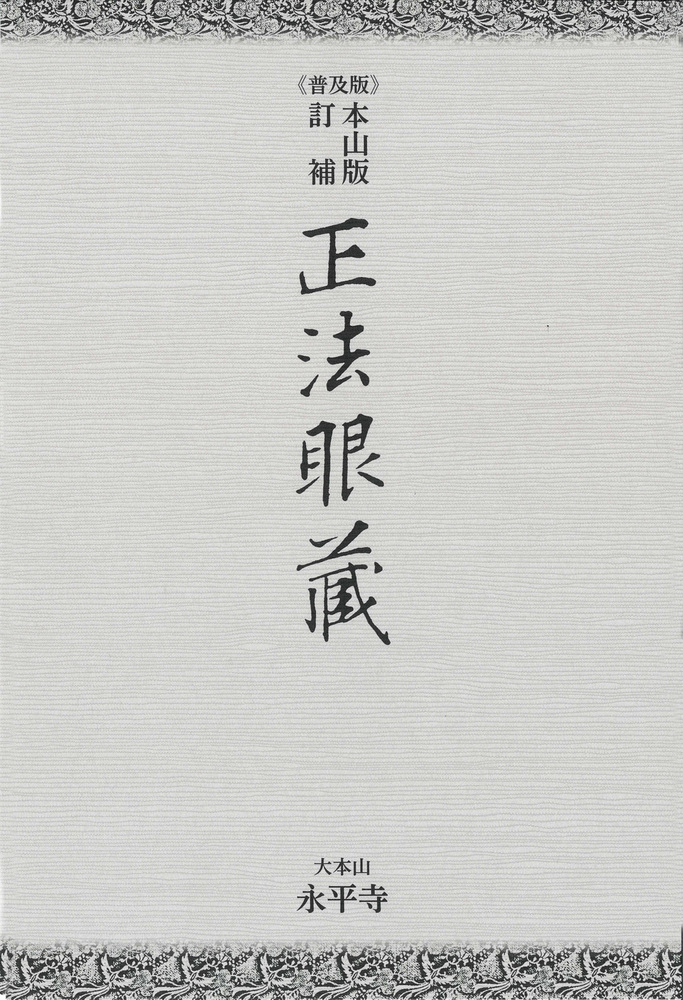 《普及版》
本山版
訂補
正法眼蔵
大本山
永平寺